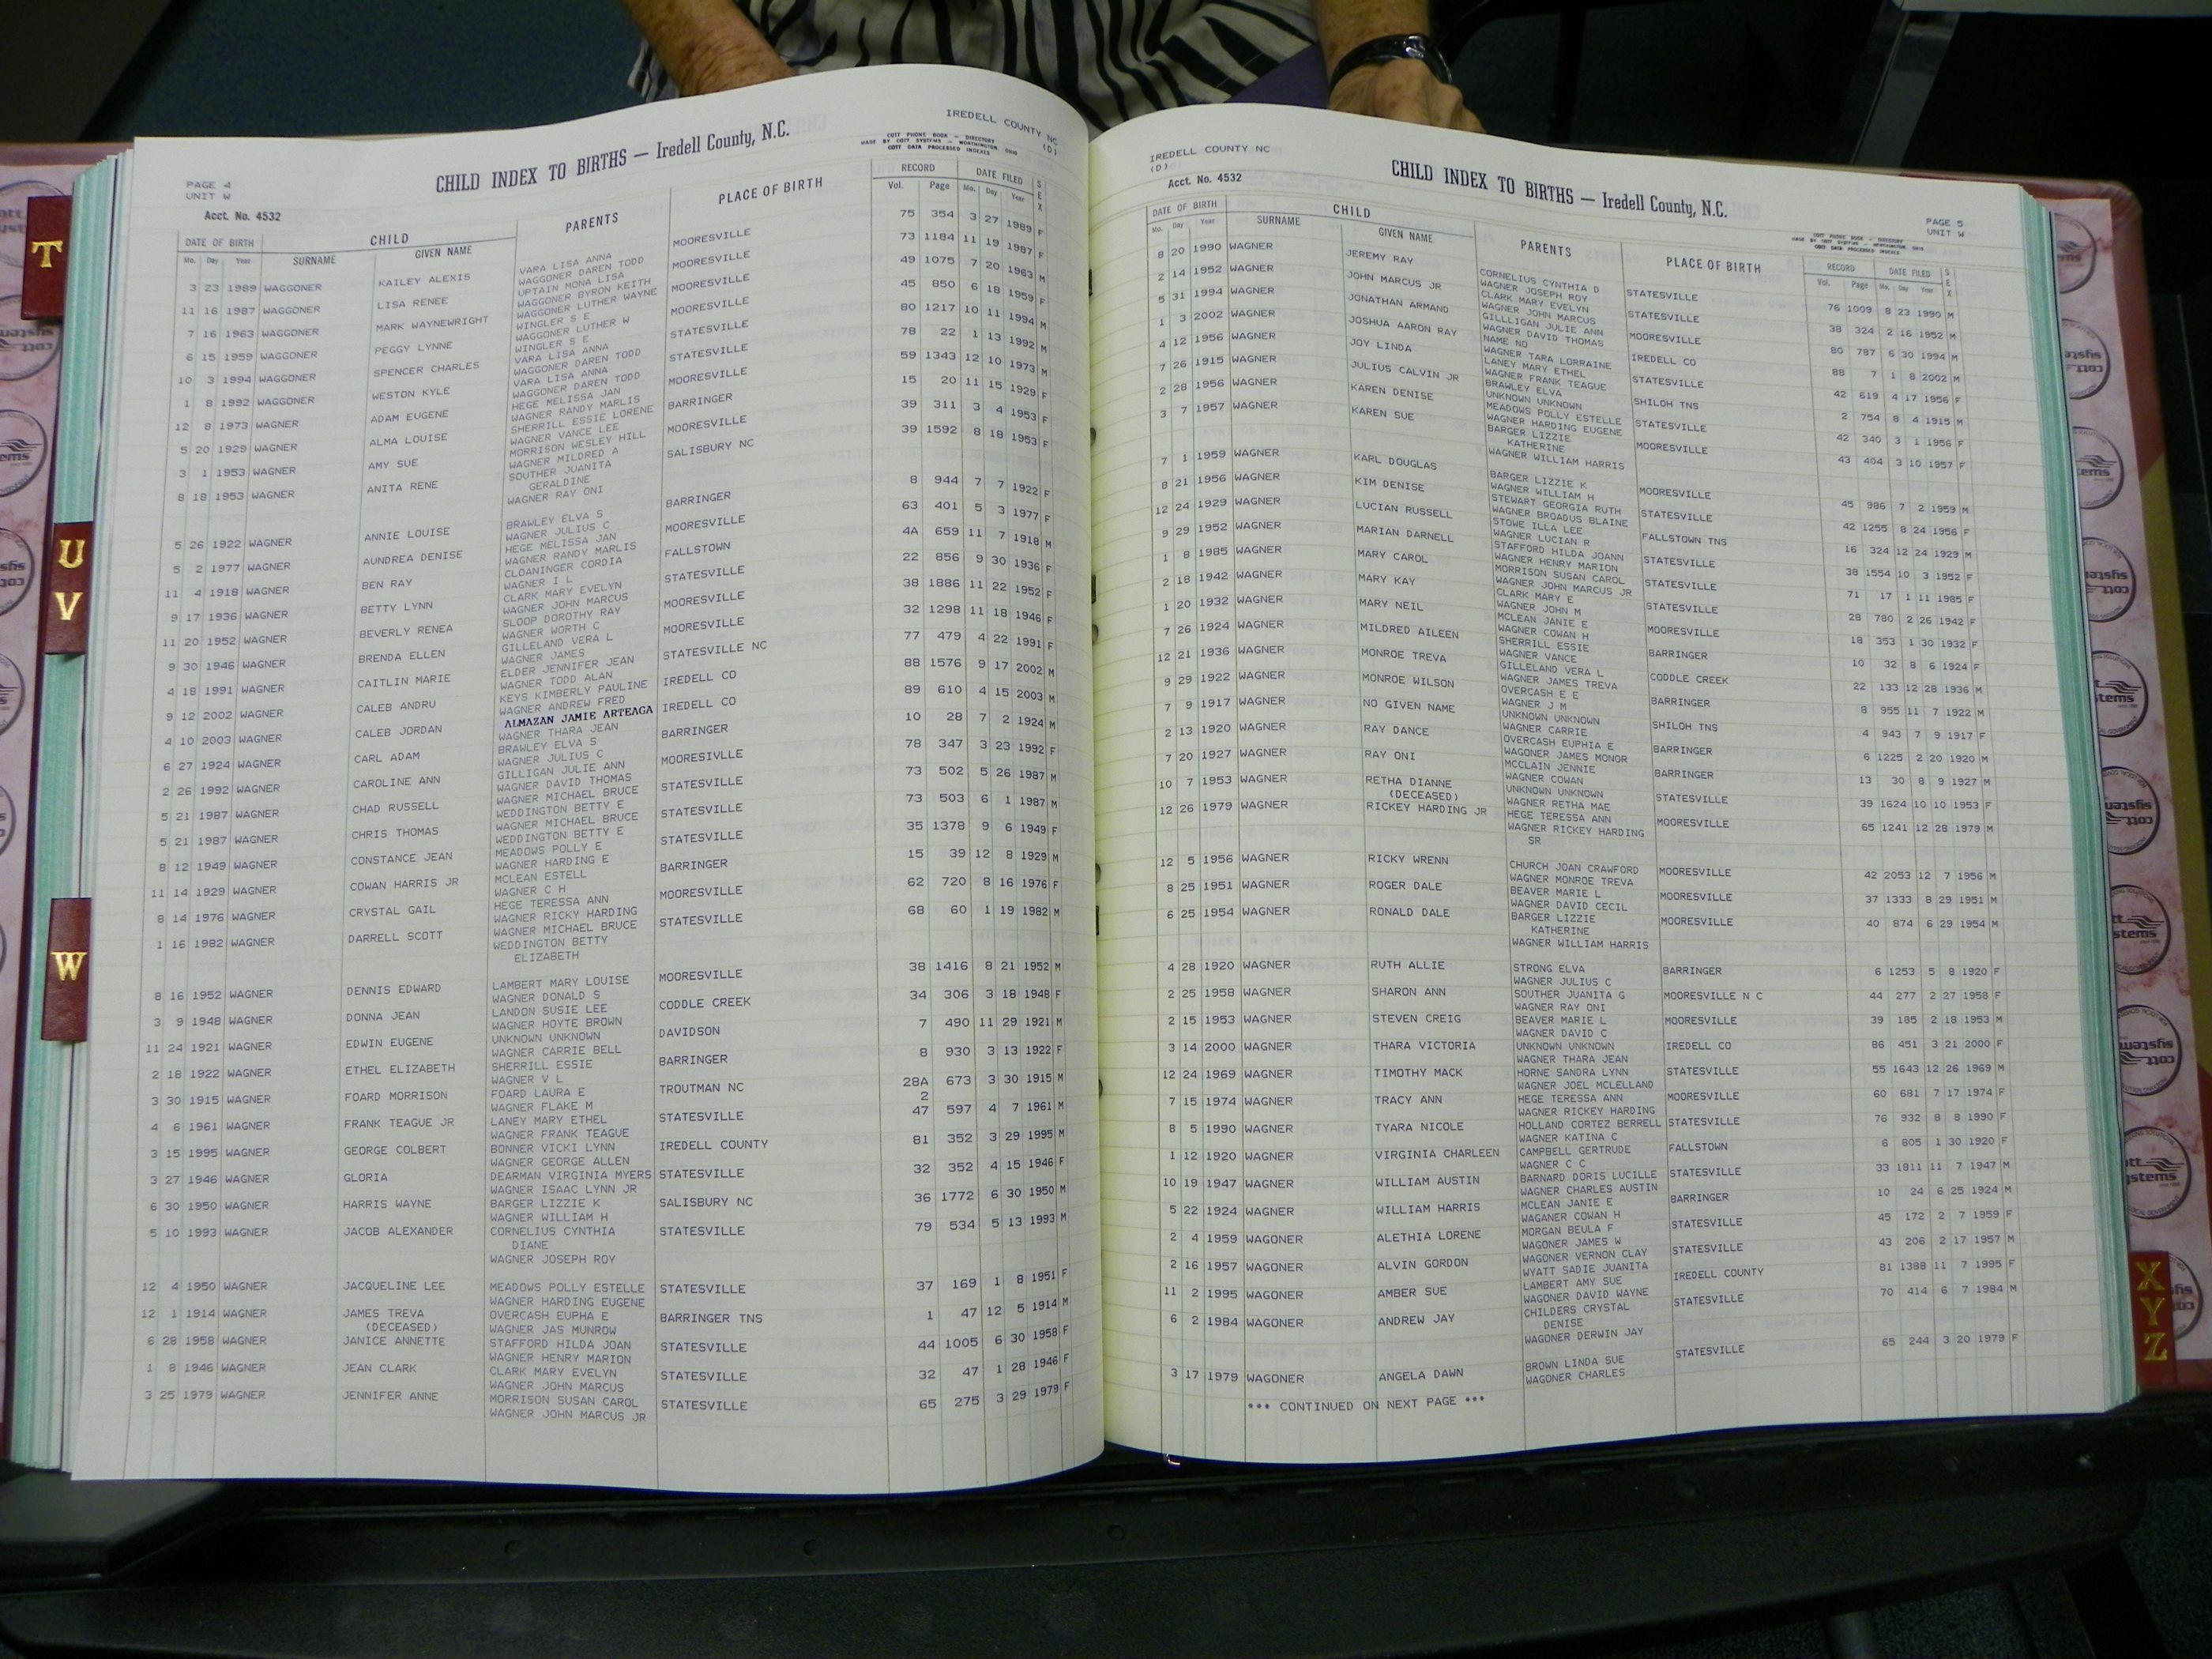 IREDELL COUNTY NC
(D)
CHILD INDEX TO BIRTHS — Iredell County, N.C.
COTT PHONE BOOK — DIRECTORY
MADE BY COTT SYSTEMS — WORTHINGTON OHIO
COTT DATA PROCESSED INDEXES
PAGE 4
UNIT W
Acct. No. 4532
DATE OF BIRTH CHILD PARENTS PLACE OF BIRTH RECORD DATE FILED SEX
Mo. Day Year SURNAME GIVEN NAME Vol. Page Mo. Day Year
3 23 1989 WAGGONER KAILEY ALEXIS VARA LISA ANNA MOORESVILLE 75 354 3 27 1989 F
WAGGONER DAREN TODD
11 16 1987 WAGGONER LISA RENEE UPTAIN MONA LISA MOORESVILLE 73 1184 11 19 1987 F
WAGGONER BYRON KEITH
7 16 1963 WAGGONER MARK WAYNEWRIGHT WAGGONER LUTHER WAYNE MOORESVILLE 49 1075 7 20 1963 M
WINGLER S E
6 15 1959 WAGGONER PEGGY LYNNE WAGGONER LUTHER W MOORESVILLE 45 850 6 18 1959 F
WINGLER S E
10 3 1994 WAGGONER SPENCER CHARLES VARA LISA ANNA STATESVILLE 80 1217 10 11 1994 M
WAGGONER DAREN TODD
1 8 1992 WAGGONER WESTON KYLE VARA LISA ANNA STATESVILLE 78 22 1 13 1992 M
WAGGONER DAREN TODD
12 8 1973 WAGNER ADAM EUGENE HEGE MELISSA JAN MOORESVILLE 59 1343 12 10 1973 M
WAGNER RANDY MARLIS
5 20 1929 WAGNER ALMA LOUISE SHERRILL ESSIE LORENE BARRINGER 15 20 11 15 1929 F
WAGNER VANCE LEE
3 1 1953 WAGNER AMY SUE MORRISON WESLEY HILL MOORESVILLE 39 311 3 4 1953 F
WAGNER MILDRED A
8 18 1953 WAGNER ANITA RENE SOUTHER JUANITA SALISBURY NC 39 1592 8 18 1953 F
GERALDINE
WAGNER RAY ONI
5 26 1922 WAGNER ANNIE LOUISE BRAWLEY ELVA S BARRINGER 8 944 7 7 1922 F
WAGNER JULIUS C
5 2 1977 WAGNER AUNDREA DENISE HEGE MELISSA JAN MOORESVILLE 63 401 5 3 1977 F
WAGNER RANDY MARLIS
11 4 1918 WAGNER BEN RAY CLOANINGER CORDIA FALLSTOWN 4A 659 11 7 1918 M
WAGNER I L
9 17 1936 WAGNER BETTY LYNN CLARK MARY EVELYN STATESVILLE 22 856 9 30 1936 F
WAGNER JOHN MARCUS
11 20 1952 WAGNER BEVERLY RENEA SLOOP DOROTHY RAY MOORESVILLE 38 1886 11 22 1952 F
WAGNER WORTH C
9 30 1946 WAGNER BRENDA ELLEN GILLELAND VERA L MOORESVILLE 32 1298 11 18 1946 F
WAGNER JAMES
4 18 1991 WAGNER CAITLIN MARIE ELDER JENNIFER JEAN STATESVILLE NC 77 479 4 22 1991 F
WAGNER TODD ALAN
9 12 2002 WAGNER CALEB ANDRU KEYS KIMBERLY PAULINE IREDELL CO 88 1576 9 17 2002 M
WAGNER ANDREW FRED
4 10 2003 WAGNER CALEB JORDAN ALMAZAN JAMIE ARTEAGA IREDELL CO 89 610 4 15 2003 M
WAGNER THARA JEAN
6 27 1924 WAGNER CARL ADAM BRAWLEY ELVA S BARRINGER 10 28 7 2 1924 M
WAGNER JULIUS C
2 26 1992 WAGNER CAROLINE ANN GILLIGAN JULIE ANN MOORESIVLLE 78 347 3 23 1992 F
WAGNER DAVID THOMAS
5 21 1987 WAGNER CHAD RUSSELL WAGNER MICHAEL BRUCE STATESVILLE 73 502 5 26 1987 M
WEDDINGTON BETTY E
5 21 1987 WAGNER CHRIS THOMAS WAGNER MICHAEL BRUCE STATESVILLE 73 503 6 1 1987 M
WEDDINGTON BETTY E
8 12 1949 WAGNER CONSTANCE JEAN MEADOWS POLLY E STATESVILLE 35 1378 9 6 1949 F
WAGNER HARDING E
11 14 1929 WAGNER COWAN HARRIS JR MCLEAN ESTELL BARRINGER 15 39 12 8 1929 M
WAGNER C H
8 14 1976 WAGNER CRYSTAL GAIL HEGE TERESSA ANN MOORESVILLE 62 720 8 16 1976 F
WAGNER RICKY HARDING
1 16 1982 WAGNER DARRELL SCOTT WAGNER MICHAEL BRUCE STATESVILLE 68 60 1 19 1982 M
WEDDINGTON BETTY
ELIZABETH
8 16 1952 WAGNER DENNIS EDWARD LAMBERT MARY LOUISE MOORESVILLE 38 1416 8 21 1952 M
WAGNER DONALD S
3 9 1948 WAGNER DONNA JEAN LANDON SUSIE LEE CODDLE CREEK 34 306 3 18 1948 F
WAGNER HOYTE BROWN
11 24 1921 WAGNER EDWIN EUGENE UNKNOWN UNKNOWN DAVIDSON 7 490 11 29 1921 M
WAGNER CARRIE BELL
2 18 1922 WAGNER ETHEL ELIZABETH SHERRILL ESSIE BARRINGER 8 930 3 13 1922 F
WAGNER V L
3 30 1915 WAGNER FOARD MORRISON FOARD LAURA E TROUTMAN NC 28A 673 3 30 1915 M
WAGNER FLAKE M 2
4 6 1961 WAGNER FRANK TEAGUE JR LANEY MARY ETHEL STATESVILLE 47 597 4 7 1961 M
WAGNER FRANK TEAGUE
3 15 1995 WAGNER GEORGE COLBERT BONNER VICKI LYNN IREDELL COUNTY 81 352 3 29 1995 M
WAGNER GEORGE ALLEN
3 27 1946 WAGNER GLORIA DEARMAN VIRGINIA MYERS STATESVILLE 32 352 4 15 1946 F
WAGNER ISAAC LYNN JR
6 30 1950 WAGNER HARRIS WAYNE BARGER LIZZIE K SALISBURY NC 36 1772 6 30 1950 M
WAGNER WILLIAM H
5 10 1993 WAGNER JACOB ALEXANDER CORNELIUS CYNTHIA STATESVILLE 79 534 5 13 1993 M
DIANE
WAGNER JOSEPH ROY
12 4 1950 WAGNER JACQUELINE LEE MEADOWS POLLY ESTELLE STATESVILLE 37 169 1 8 1951 F
WAGNER HARDING EUGENE
12 1 1914 WAGNER JAMES TREVA OVERCASH EUPHA E BARRINGER TNS 1 47 12 5 1914 M
(DECEASED) WAGNER JAS MUNROW
6 28 1958 WAGNER JANICE ANNETTE STAFFORD HILDA JOAN STATESVILLE 44 1005 6 30 1958 F
WAGNER HENRY MARION
1 8 1946 WAGNER JEAN CLARK CLARK MARY EVELYN STATESVILLE 32 47 1 28 1946 F
WAGNER JOHN MARCUS
3 25 1979 WAGNER JENNIFER ANNE MORRISON SUSAN CAROL STATESVILLE 65 275 3 29 1979 F
WAGNER JOHN MARCUS JR
IREDELL COUNTY NC
(D)
CHILD INDEX TO BIRTHS — Iredell County, N.C.
Acct. No. 4532
PAGE 5
UNIT W
COTT PHONE BOOK — DIRECTORY
MADE BY COTT SYSTEMS — WORTHINGTON OHIO
COTT DATA PROCESSED INDEXES
DATE OF BIRTH CHILD PARENTS PLACE OF BIRTH RECORD DATE FILED SEX
Mo. Day Year SURNAME GIVEN NAME Vol. Page Mo. Day Year
8 20 1990 WAGNER JEREMY RAY CORNELIUS CYNTHIA D STATESVILLE 76 1009 8 23 1990 M
WAGNER JOSEPH ROY
2 14 1952 WAGNER JOHN MARCUS JR CLARK MARY EVELYN STATESVILLE 38 324 2 16 1952 M
WAGNER JOHN MARCUS
5 31 1994 WAGNER JONATHAN ARMAND GILLLIGAN JULIE ANN MOORESVILLE 80 787 6 30 1994 M
WAGNER DAVID THOMAS
1 3 2002 WAGNER JOSHUA AARON RAY NAME NO IREDELL CO 88 7 1 8 2002 M
WAGNER TARA LORRAINE
4 12 1956 WAGNER JOY LINDA LANEY MARY ETHEL STATESVILLE 42 619 4 17 1956 F
WAGNER FRANK TEAGUE
7 26 1915 WAGNER JULIUS CALVIN JR BRAWLEY ELVA SHILOH TNS 2 754 8 4 1915 M
UNKNOWN UNKNOWN
2 28 1956 WAGNER KAREN DENISE MEADOWS POLLY ESTELLE STATESVILLE 42 340 3 1 1956 F
WAGNER HARDING EUGENE
3 7 1957 WAGNER KAREN SUE BARGER LIZZIE MOORESVILLE 43 404 3 10 1957 F
KATHERINE
WAGNER WILLIAM HARRIS
7 1 1959 WAGNER KARL DOUGLAS BARGER LIZZIE K MOORESVILLE 45 986 7 2 1959 M
WAGNER WILLIAM H
8 21 1956 WAGNER KIM DENISE STEWART GEORGIA RUTH STATESVILLE 42 1255 8 24 1956 F
WAGNER BROADUS BLAINE
12 24 1929 WAGNER LUCIAN RUSSELL STOWE ILLA LEE FALLSTOWN TNS 16 324 12 24 1929 M
WAGNER LUCIAN R
9 29 1952 WAGNER MARIAN DARNELL STAFFORD HILDA JOANN STATESVILLE 38 1554 10 3 1952 F
WAGNER HENRY MARION
1 8 1985 WAGNER MARY CAROL MORRISON SUSAN CAROL STATESVILLE 71 17 1 11 1985 F
WAGNER JOHN MARCUS JR
2 18 1942 WAGNER MARY KAY CLARK MARY E STATESVILLE 28 780 2 26 1942 F
WAGNER JOHN M
1 20 1932 WAGNER MARY NEIL MCLEAN JANIE E MOORESVILLE 18 353 1 30 1932 F
WAGNER COWAN H
7 26 1924 WAGNER MILDRED AILEEN SHERRILL ESSIE BARRINGER 10 32 8 6 1924 F
WAGNER VANCE
12 21 1936 WAGNER MONROE TREVA GILLELAND VERA L CODDLE CREEK 22 133 12 28 1936 M
WAGNER JAMES TREVA
9 29 1922 WAGNER MONROE WILSON OVERCASH E E BARRINGER 8 955 11 7 1922 M
WAGNER J M
7 9 1917 WAGNER NO GIVEN NAME UNKNOWN UNKNOWN SHILOH TNS 4 943 7 9 1917 F
WAGNER CARRIE
2 13 1920 WAGNER RAY DANCE OVERCASH EUPHIA E BARRINGER 6 1225 2 20 1920 M
WAGONER JAMES MONOR
7 20 1927 WAGNER RAY ONI MCCLAIN JENNIE BARRINGER 13 30 8 9 1927 M
WAGNER COWAN
10 7 1953 WAGNER RETHA DIANNE UNKNOWN UNKNOWN STATESVILLE 39 1624 10 10 1953 F
(DECEASED) WAGNER RETHA MAE
12 26 1979 WAGNER RICKEY HARDING JR HEGE TERESSA ANN MOORESVILLE 65 1241 12 28 1979 M
WAGNER RICKEY HARDING
SR
12 5 1956 WAGNER RICKY WRENN CHURCH JOAN CRAWFORD MOORESVILLE 42 2053 12 7 1956 M
WAGNER MONROE TREVA
8 25 1951 WAGNER ROGER DALE BEAVER MARIE L MOORESVILLE 37 1333 8 29 1951 M
WAGNER DAVID CECIL
6 25 1954 WAGNER RONALD DALE BARGER LIZZIE MOORESVILLE 40 874 6 29 1954 M
KATHERINE
WAGNER WILLIAM HARRIS
4 28 1920 WAGNER RUTH ALLIE STRONG ELVA BARRINGER 6 1253 5 8 1920 F
WAGNER JULIUS C
2 25 1958 WAGNER SHARON ANN SOUTHER JUANITA G MOORESVILLE N C 44 277 2 27 1958 F
WAGNER RAY ONI
2 15 1953 WAGNER STEVEN CREIG BEAVER MARIE L MOORESVILLE 39 185 2 18 1953 M
WAGNER DAVID C
3 14 2000 WAGNER THARA VICTORIA UNKNOWN UNKNOWN IREDELL CO 86 451 3 21 2000 F
WAGNER THARA JEAN
12 24 1969 WAGNER TIMOTHY MACK HORNE SANDRA LYNN STATESVILLE 55 1643 12 26 1969 M
WAGNER JOEL MCLELLAND
7 15 1974 WAGNER TRACY ANN HEGE TERESSA ANN MOORESVILLE 60 681 7 17 1974 F
WAGNER RICKEY HARDING
8 5 1990 WAGNER TYARA NICOLE HOLLAND CORTEZ BERRELL STATESVILLE 76 932 8 8 1990 F
WAGNER KATINA C
1 12 1920 WAGNER VIRGINIA CHARLEEN CAMPBELL GERTRUDE FALLSTOWN 6 805 1 30 1920 F
WAGNER C C
10 19 1947 WAGNER WILLIAM AUSTIN BARNARD DORIS LUCILLE STATESVILLE 33 1811 11 7 1947 M
WAGNER CHARLES AUSTIN
5 22 1924 WAGNER WILLIAM HARRIS MCLEAN JANIE E BARRINGER 10 24 6 25 1924 M
WAGANER COWAN H
2 4 1959 WAGONER ALETHIA LORENE MORGAN BEULA F STATESVILLE 45 172 2 7 1959 F
WAGONER JAMES W
2 16 1957 WAGONER ALVIN GORDON WAGONER VERNON CLAY STATESVILLE 43 206 2 17 1957 M
WYATT SADIE JUANITA
11 2 1995 WAGONER AMBER SUE LAMBERT AMY SUE IREDELL COUNTY 81 1388 11 7 1995 F
WAGONER DAVID WAYNE
6 2 1984 WAGONER ANDREW JAY CHILDERS CRYSTAL STATESVILLE 70 414 6 7 1984 M
DENISE
WAGONER DERWIN JAY
3 17 1979 WAGONER ANGELA DAWN BROWN LINDA SUE STATESVILLE 65 244 3 20 1979 F
WAGONER CHARLES
*** CONTINUED ON NEXT PAGE ***
T
U
V
W
X
Y
Z